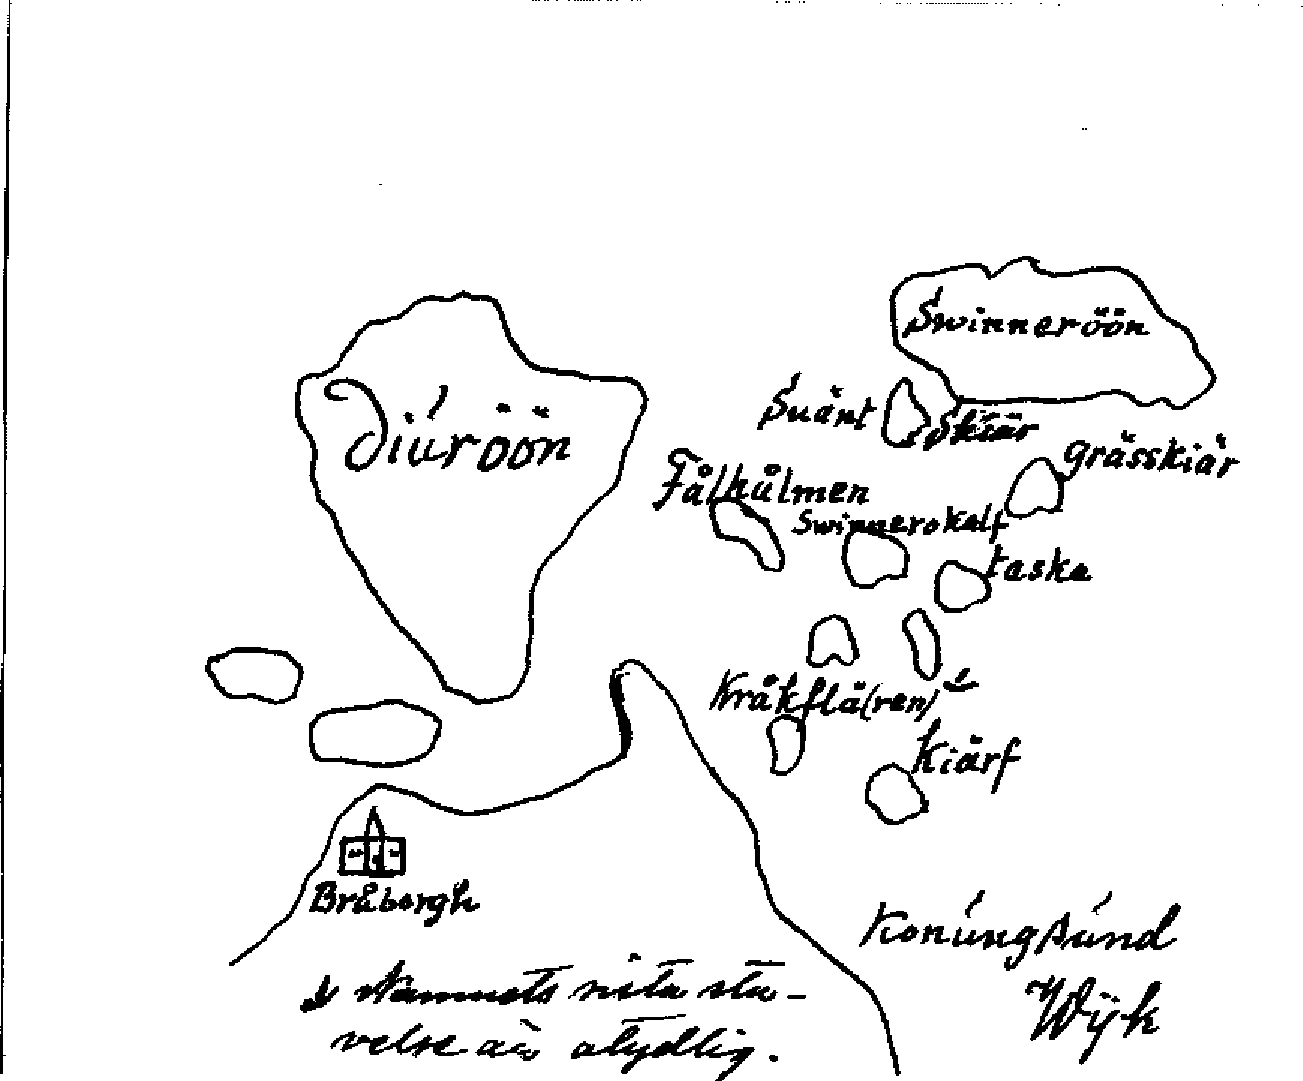 Swinneröön
Diúröön
Suänt
Skiär
grässkiär
Fålhålmen
Swinnerokalf
taska
Kråkflä(ren)
Kiärf
Bråborgh
Konúngsúnd
Wÿk
Namnets sista sta-
velse är otydlig.